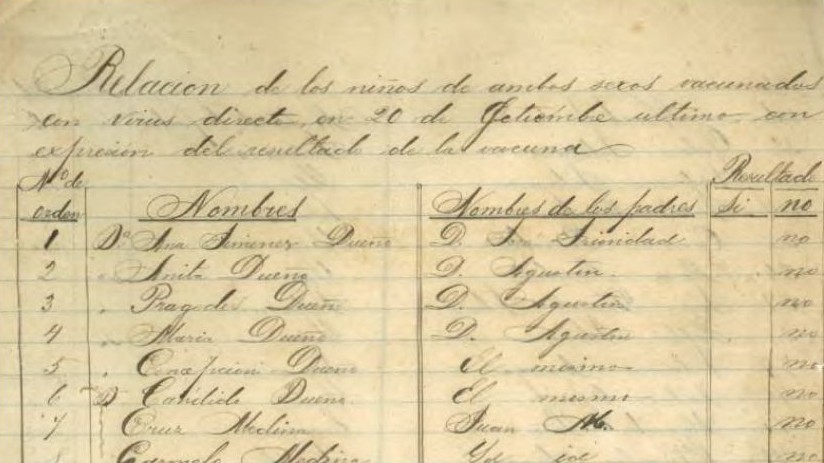 Relacion de los niños de ambos sexos vacunados
con virus directo en 20 de Setiembre ultimo con
expresion del resultado de la vacuna
Nº de orden Nombres Nombres de los padres Resultado Si no
1 Dª Ana Jimenez Dueño D. Trinidad no
2 " Anita Dueño D. Agustin no
3 " Pragedes Dueño D. Agustin no
4 " Maria Dueño D. Agustin no
5 " Concepcion Dueño El mismo no
6 D Candido Dueno El mismo no
7 Cruz Medina Juan M. no
Carmelo Medina no